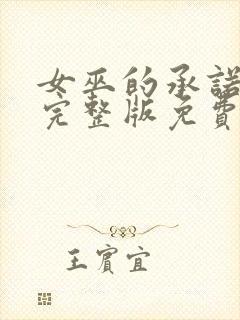 女巫的承諾
完整版免費
王賓宜